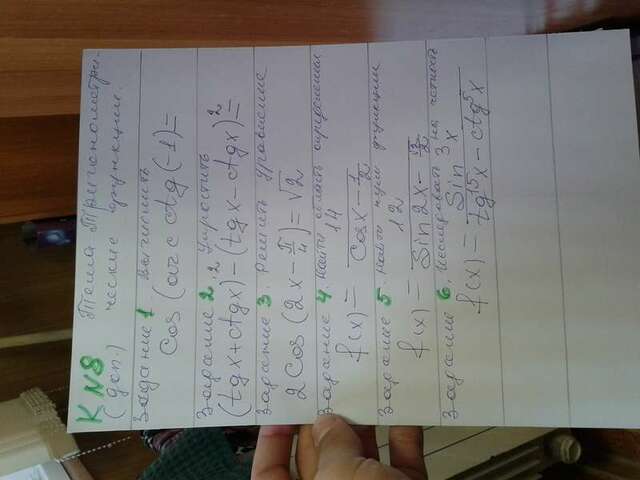 К N8 Тема Тригонометри-
(доп.) ческие функции.
Задание 1 Вычислить
cos (arcctg(-1)=
Задание 2. Упростить
(tgx+ctgx)²-(tgx-ctgx)²=
Задание 3. Решить уравнение
2cos(2x-π/4)=√2
Задание 4. Найти область определения
f(x)= 14/(cosx-1/2)
Задание 5. Найти нули функции
f(x)= 12/(Sin2x-√2/2)
Задание 6. Исследовать на четность
f(x)= Sin³x/(tg⁵x-ctg⁵x)